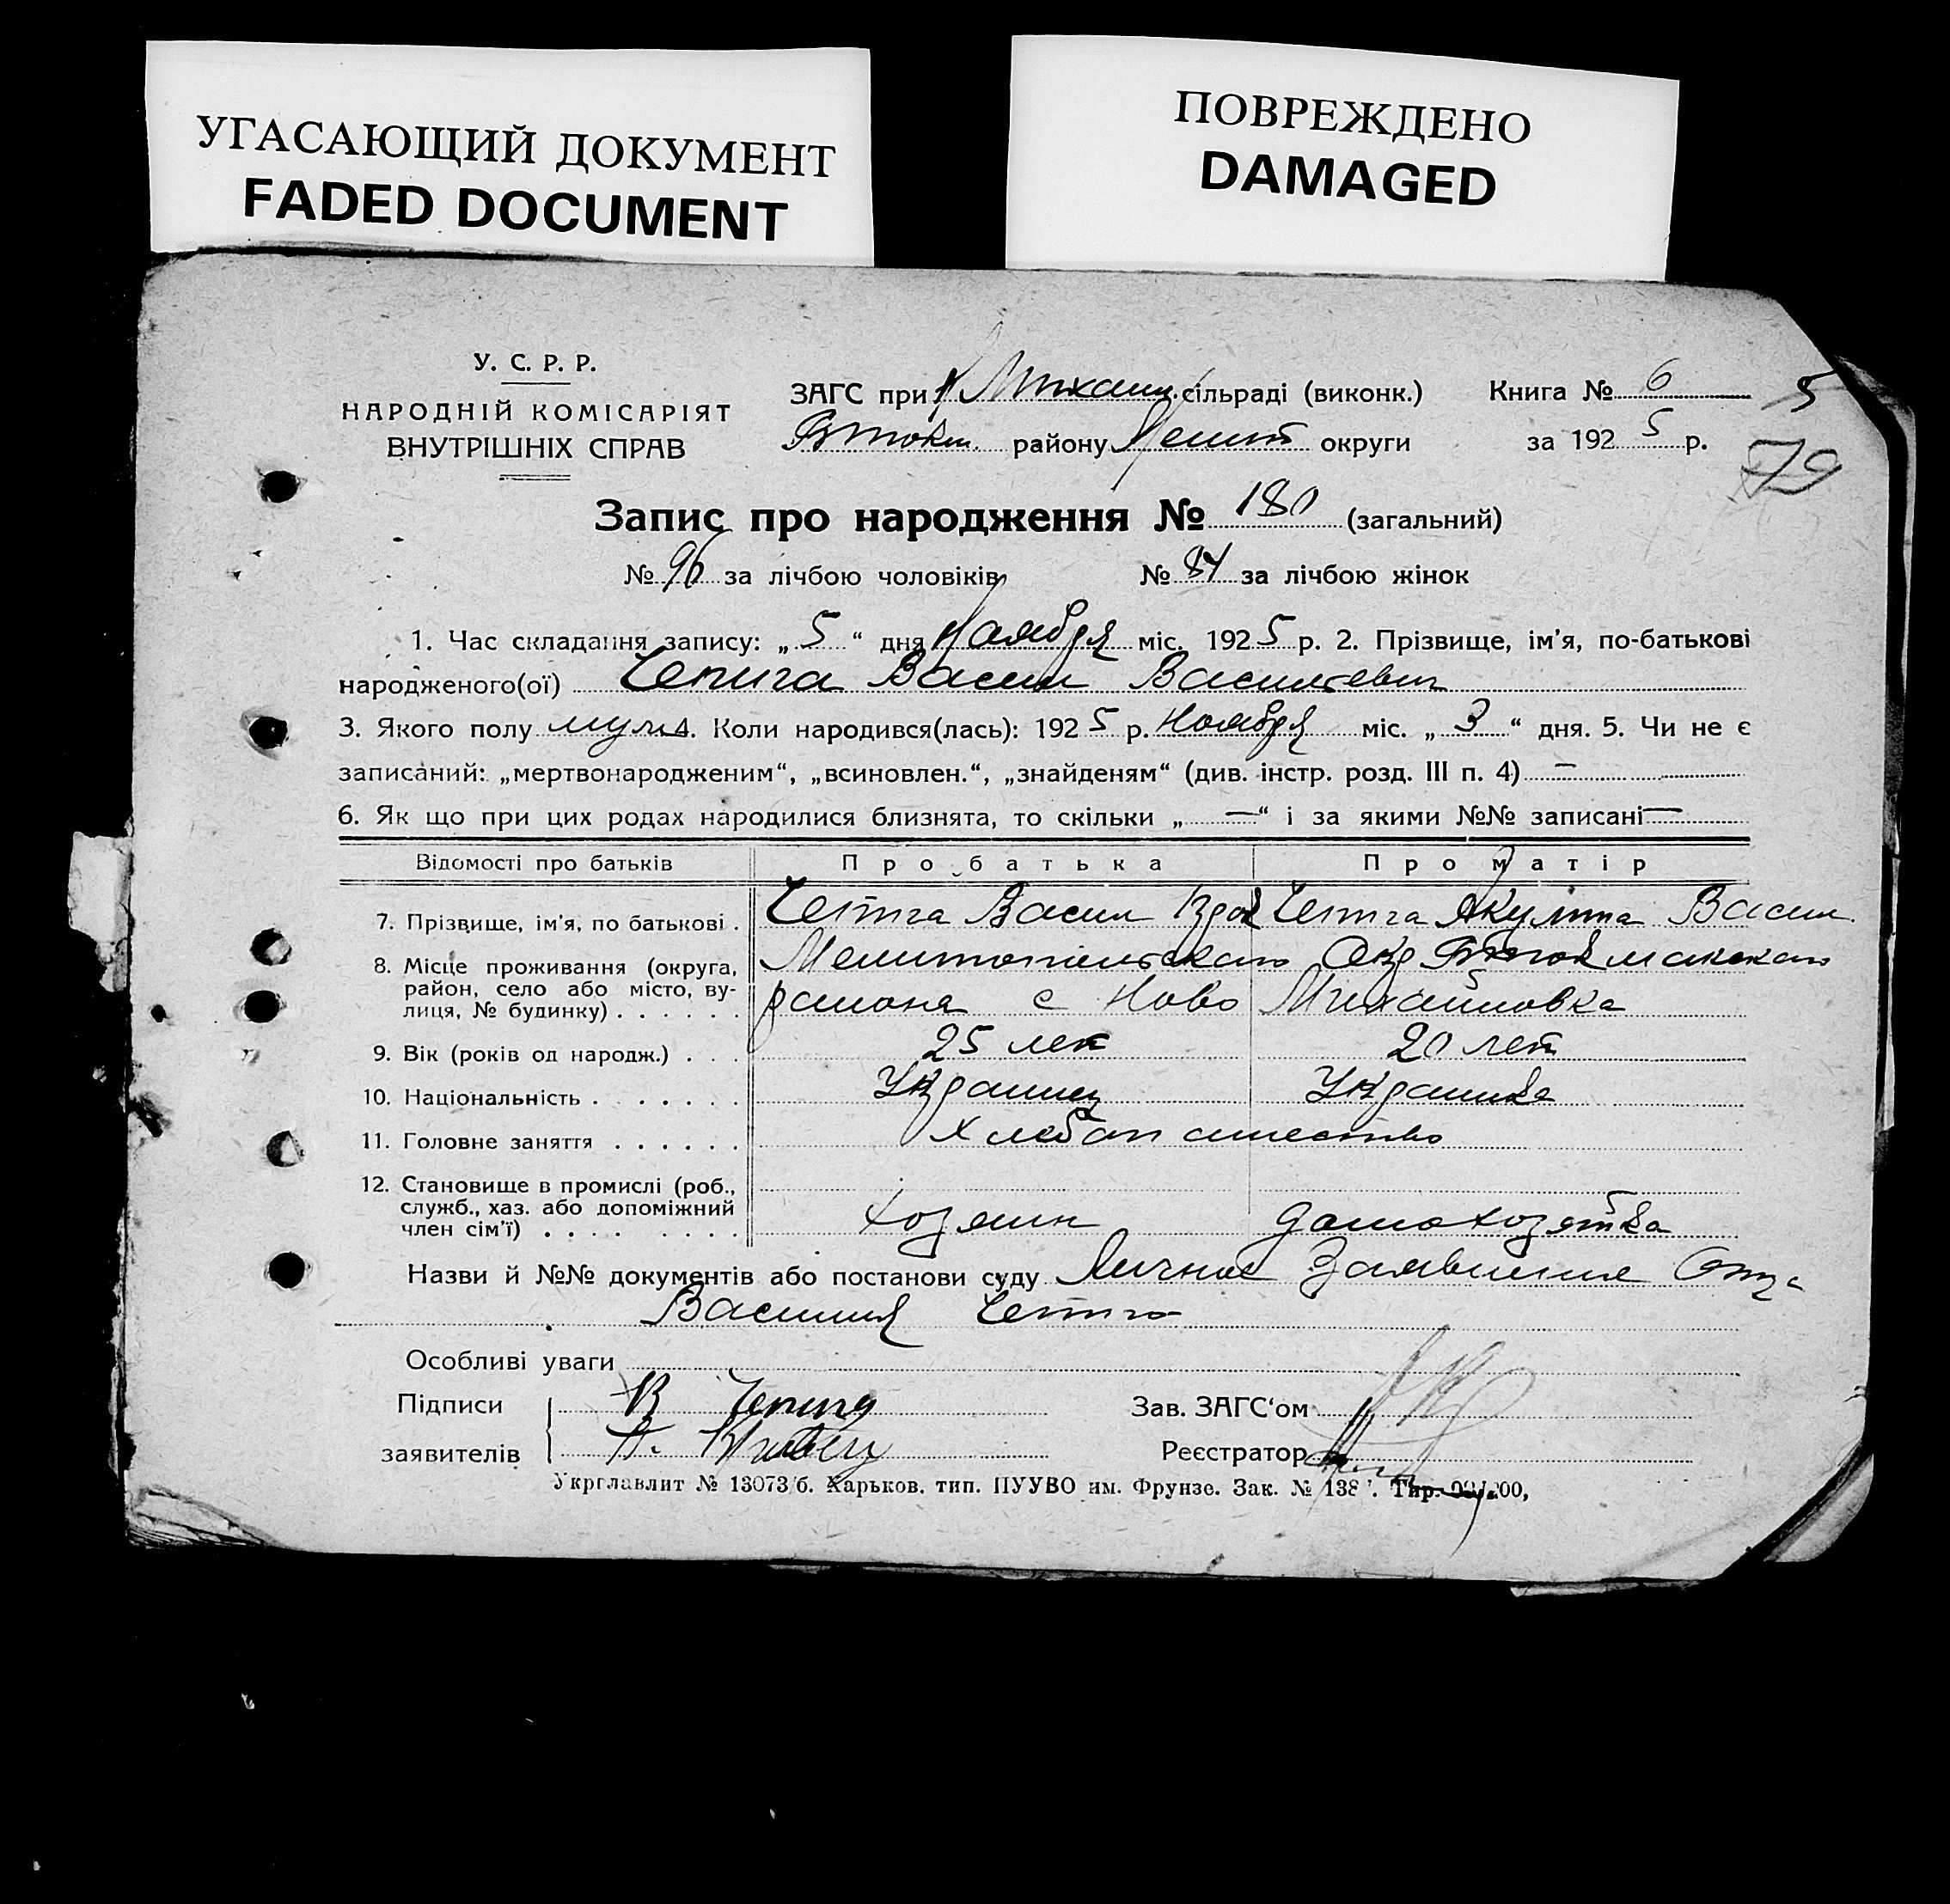 УГАСАЮЩИЙ ДОКУМЕНТ
FADED DOCUMENT
ПОВРЕЖДЕНО
DAMAGED
У. С. Р. Р.
НАРОДНІЙ КОМІСАРІЯТ
ВНУТРІШНІХ СПРАВ
ЗАГС при Н Михайл. сільраді (виконк.) Книга № 6 5
Втокм. району Мелит округи за 1925 р.
79
Запис про народження № 180 (загальний)
№ 96 за лічбою чоловіків № 84 за лічбою жінок
1. Час складання запису: „ 5 “ дня Ноября міс. 1925 р. 2. Прізвище, ім'я, по-батькові
народженого(ої) Чепига Васил Васильевич
3. Якого полу муж 4. Коли народився(лась): 1925 р. Ноября міс. „ 3 “ дня. 5. Чи не є
записаний: „мертвонародженим“, „всиновлен.“, „знайденям“ (див. інстр. розд. III п. 4) —
6. Як що при цих родах народилися близнята, то скільки „ — “ і за якими №№ записані —
Відомості про батьків Про батька Про матір
7. Прізвище, ім'я, по батькові . Чепига Васил Чепига Акулина Васил
8. Місце проживання (округа, Мелитопольского Окр Втокмакского
район, село або місто, ву-
лиця, № будинку) . . . . . . района с Ново Михайловка
9. Вік (років од народж.) . . . 25 лет 20 лет
10. Національність . . . . . . . Украинец Украинка
11. Головне заняття . . . . . . Хлебопашество
12. Становище в промислі (роб.,
служб., хаз. або допоміжний
член сім'ї) . . . . . . . . хозяин домохозяйка
Назви й №№ документів або постанови суду Личное Заявление Отца
Василия Чепига
Особливі уваги
Підписи В Чепига Зав. ЗАГС'ом
заявителів Реєстратор
Укрглавлит № 13073/б. Харьков. тип. ПУУВО им. Фрунзе. Зак. № 138 . Тир.